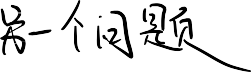 另一个问题